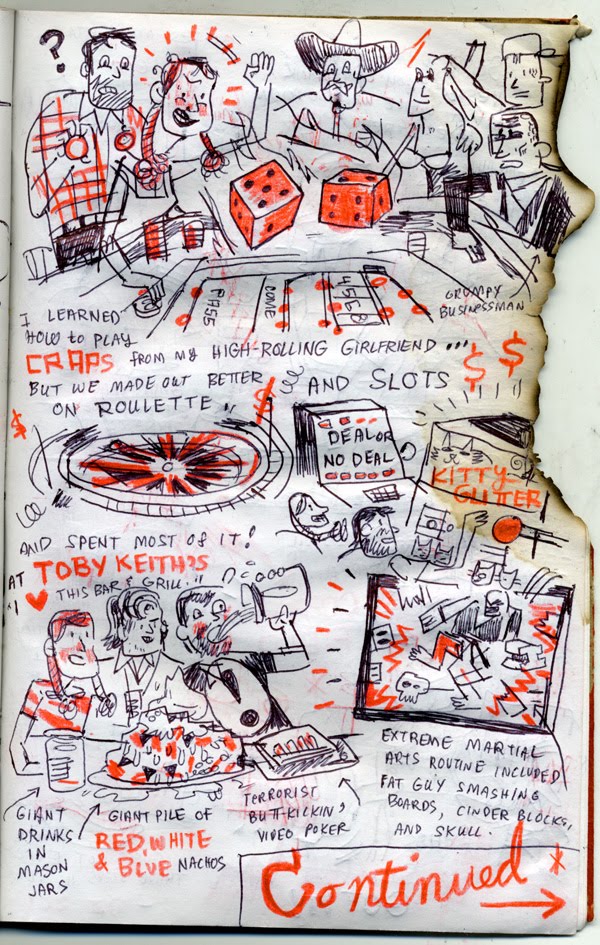 ?
PASS
COME
4 5 6 8
GRUMPY
BUSINESSMAN
I LEARNED
HOW TO PLAY
CRAPS FROM MY HIGH-ROLLING GIRLFRIEND...
BUT WE MADE OUT BETTER
ON ROULETTE..
AND SLOTS
$ $
$
$
DEAL OR
NO DEAL
KITTY
GLITTER
AND SPENT MOST OF IT!
AT TOBY KEITH'S
"I ♥ THIS BAR & GRILL"
!
EXTREME MARTIAL
ARTS ROUTINE INCLUDED
FAT GUY SMASHING
BOARDS, CINDER BLOCKS,
AND SKULL.
GIANT
DRINKS
IN
MASON
JARS
GIANT PILE OF
RED, WHITE
& BLUE NACHOS
TERRORIST
BUTT-KICKIN'
VIDEO POKER
Continued